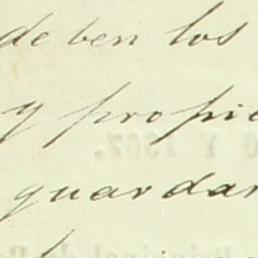 deben los
y propie
guardar